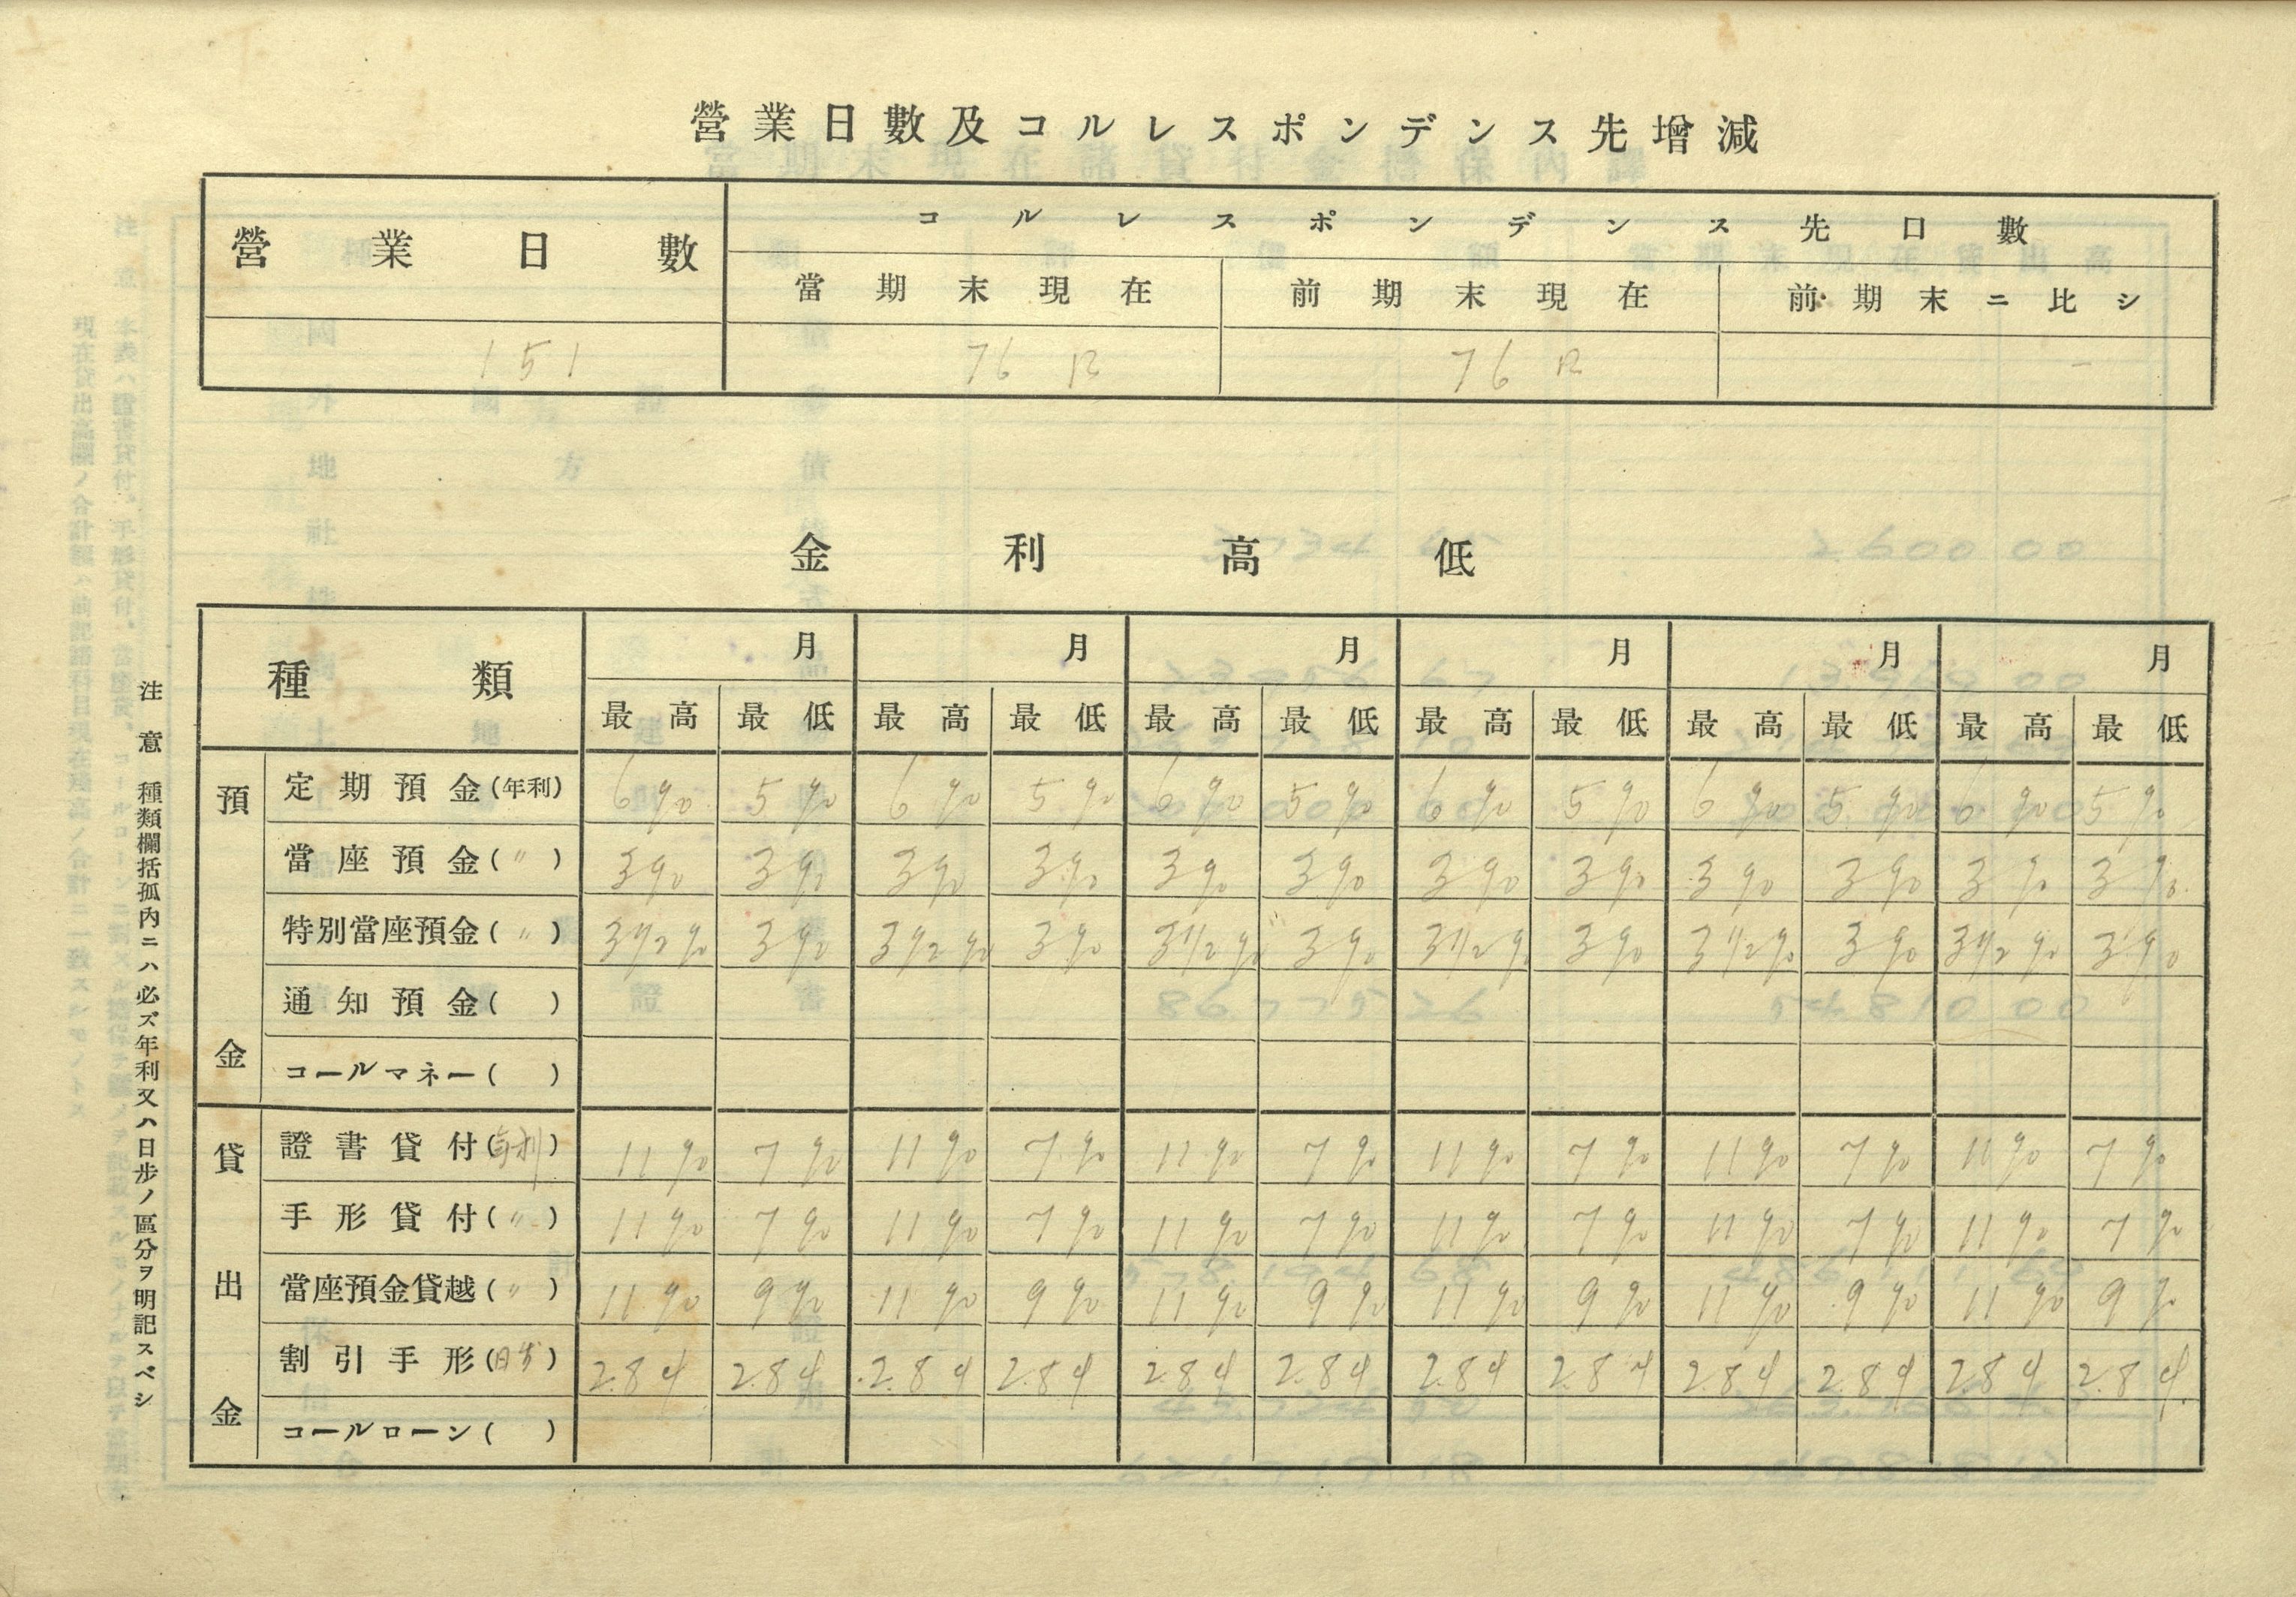 營業日數及コルレスポンデンス先增減
營業日數 コルレスポンデンス先口數
當期末現在 前期末現在 前期末ニ比シ
151 76 口 76 口 -
金利高低
種類 月 月 月 月 月 月
最高 最低 最高 最低 最高 最低 最高 最低 最高 最低 最高 最低
預金
定期預金(年利) 6% 5% 6% 5% 6% 5% 6% 5% 6% 5% 6% 5%
當座預金(〃) 3% 3% 3% 3% 3% 3% 3% 3% 3% 3% 3% 3%
特別當座預金(〃) 3 1/2% 3% 3 1/2% 3% 3 1/2% 3% 3 1/2% 3% 3 1/2% 3% 3 1/2% 3%
通知預金( )
コールマネー( )
貸出金
證書貸付(年利) 11% 7% 11% 7% 11% 7% 11% 7% 11% 7% 11% 7%
手形貸付(〃) 11% 7% 11% 7% 11% 7% 11% 7% 11% 7% 11% 7%
當座預金貸越(〃) 11% 9% 11% 9% 11% 9% 11% 9% 11% 9% 11% 9%
割引手形(日歩) 2.84 2.84 2.84 2.84 2.84 2.84 2.84 2.84 2.84 2.84 2.84 2.84
コールローン( )
注意 種類欄括孤內ニハ必ズ年利又ハ日步ノ區分ヲ明記スベシ